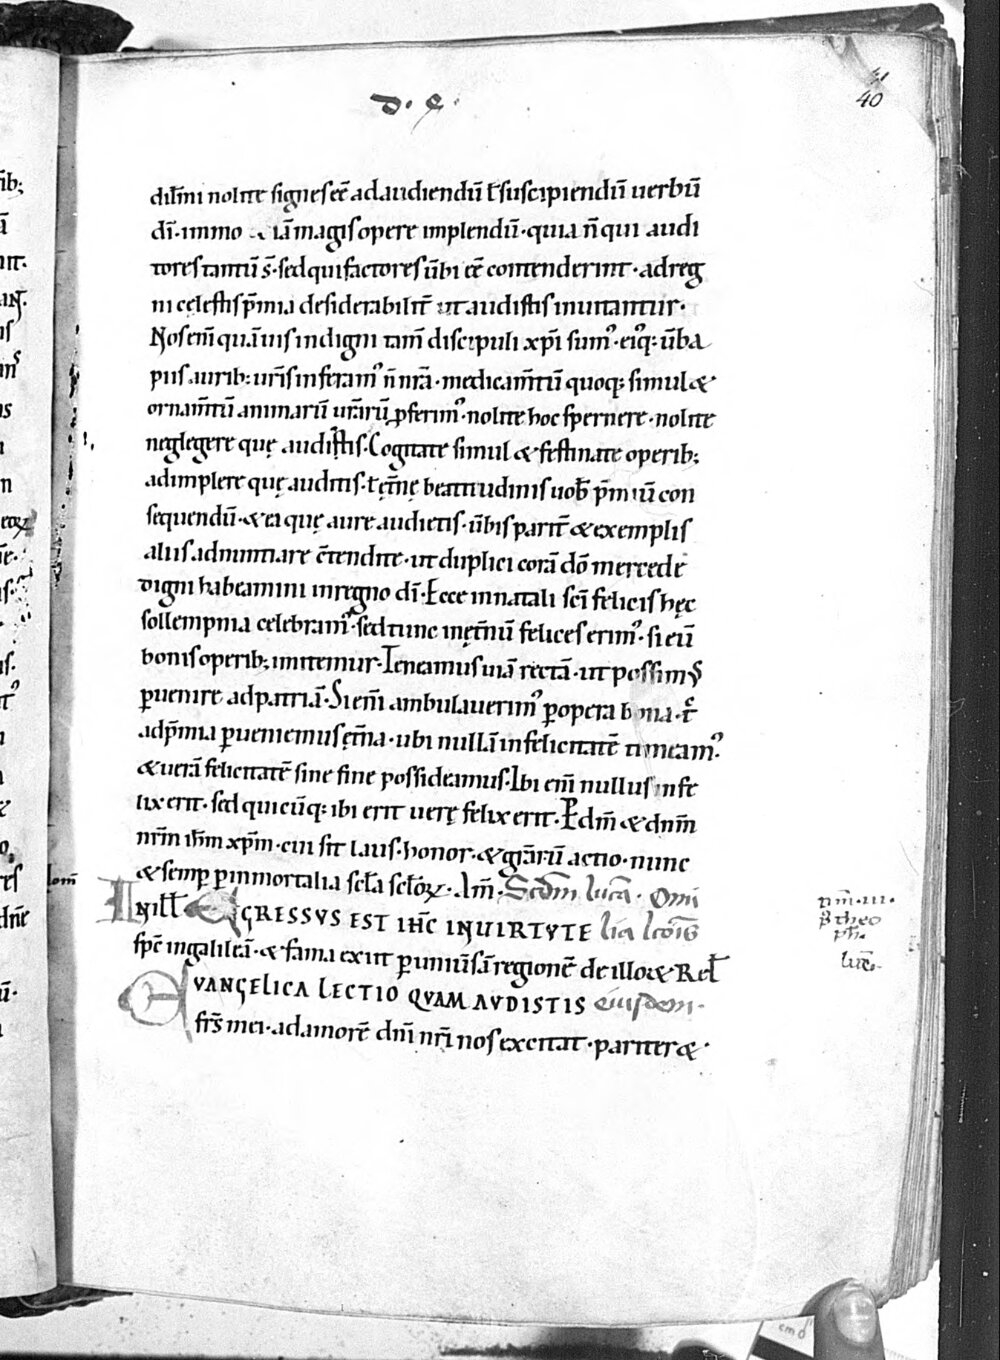 41
40
d. e.
dil̄mi nolite signes eē ad audiendū ł suscipiendū uerbū
dī. immo & iā magis opere implendū. quia n̄ qui audi
tores tantū s̄. sed qui factores ūbi eē contenderint. ad reg
ni cęlestis p̄mia desiderabilit̄ ut audistis inuitantur.
Nos enī quāuis indigni tam̄ discipuli xp̄i sum᾽. ei᾽q; ūba
piis aurib; ur̄is inferam᾽ n̄ nr̄a. medicam̄tū quoq; simul &
ornam̄tū animarū ur̄arū ꝓferim᾽. nolite hoc spernere. nolite
neglegere quę audistis. Cogitate simul & festinate operib;
adimplere quę auditis. ł ęt̄nę beatitudinis uob̄ p̄miū con
sequendū. & ea quę aure audietis. ūbis parit̄ & exemplis
aliis adnuntiare c̄tendite. ut duplici corā dō mercede
digni habeamini in regno dī. Ecce in natali sc̄i felicis hęc
sollempnia celebram᾽. sed tunc in ęt̄nū felices erim᾽. si eū
bonis operib; imitemur. Teneamus uiā rectā. ut possim᾽
ꝑuenire ad patriā. Si enī ambulauerim᾽ ꝑ opera bona.
ad p̄mia ꝑueniemus ęt̄na. ubi nullā infelicitatē timeam᾽.
& uerā felicitatē sine fine possideamus. Ibi enī nullus infe
lix erit. sed quicūq; ibi erit uerę felix erit. P dm̄ & dnm̄
nr̄m ih̄m xp̄m. cui sit laus. honor. & gr̄arū actio. nunc
& semꝑ ꝑ inmortalia scl̄a scl̄oꝝ. Am̄. Scdm̄ lucā. Omi
In ill̄ EGRESSVS EST IHC̄ IN VIRTVTE lia
sp̄c in galileā. & fama exiit ꝑ uniūsā regionē de illo. & Rel̄
EVANGELICA LECTIO QVAM AVDISTIS eiusdem.
frs̄ mei. ad amorē dnī nr̄i nos excitat. pariter &.